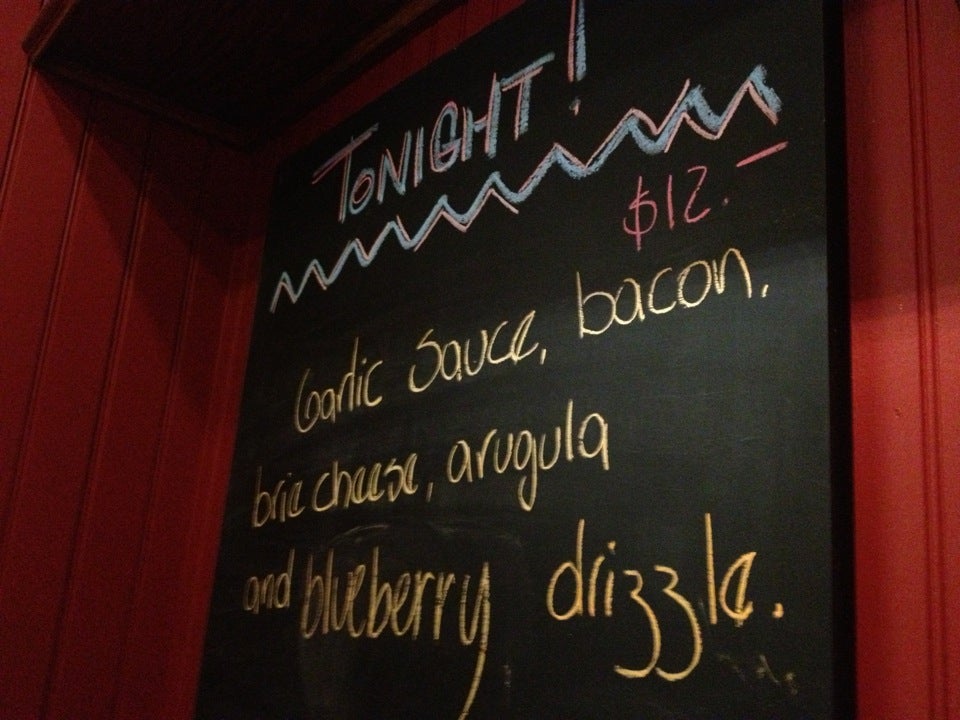 TONIGHT!
$12.–
Garlic Sauce, bacon,
brie cheese, arugula
and blueberry drizzle.